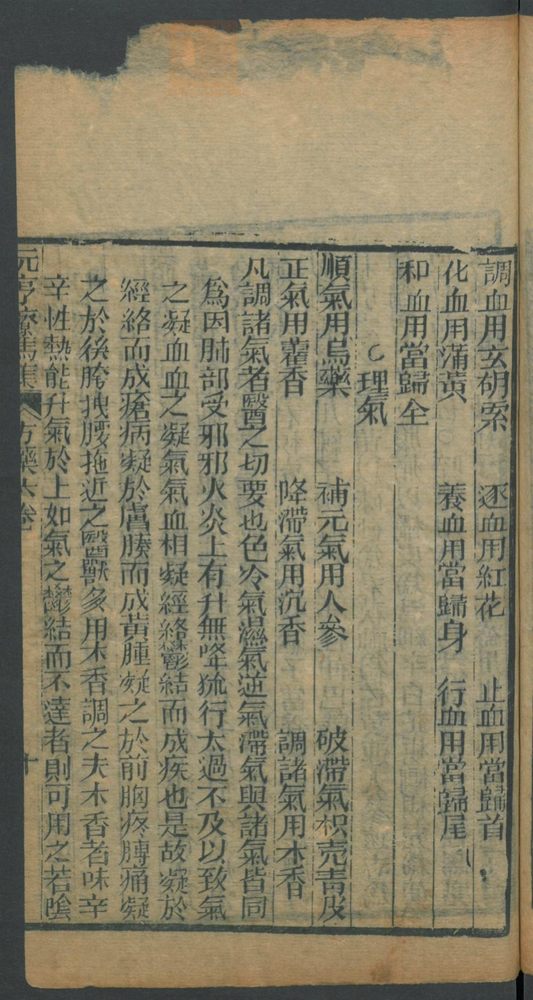 調血用玄胡索　逐血用紅花　止血用當歸首
化血用蒲黃　養血用當歸身　行血用當歸尾
和血用當歸全
○理氣
順氣用烏藥　補元氣用人參　破滯氣枳壳青皮
正氣用藿香　降滯氣用沉香　調諸氣用木香
凡調諸氣者醫之切要也色冷氣濕氣逆氣滯氣與諸氣皆同
爲因肺部受邪邪火炎上有升無降流行太過不及以致氣
之凝血血之凝氣氣血相凝經絡鬱結而成疾也是故凝於
經絡而成瘡病凝於膚腠而成黃腫凝之於前胸疼膊痛凝
之於後胯拽腰拖近之醫獸多用木香調之夫木香者味辛
辛性熱能升氣於上如氣之鬱結而不達者則可用之若陰
元亨療馬集　方藥六卷　十